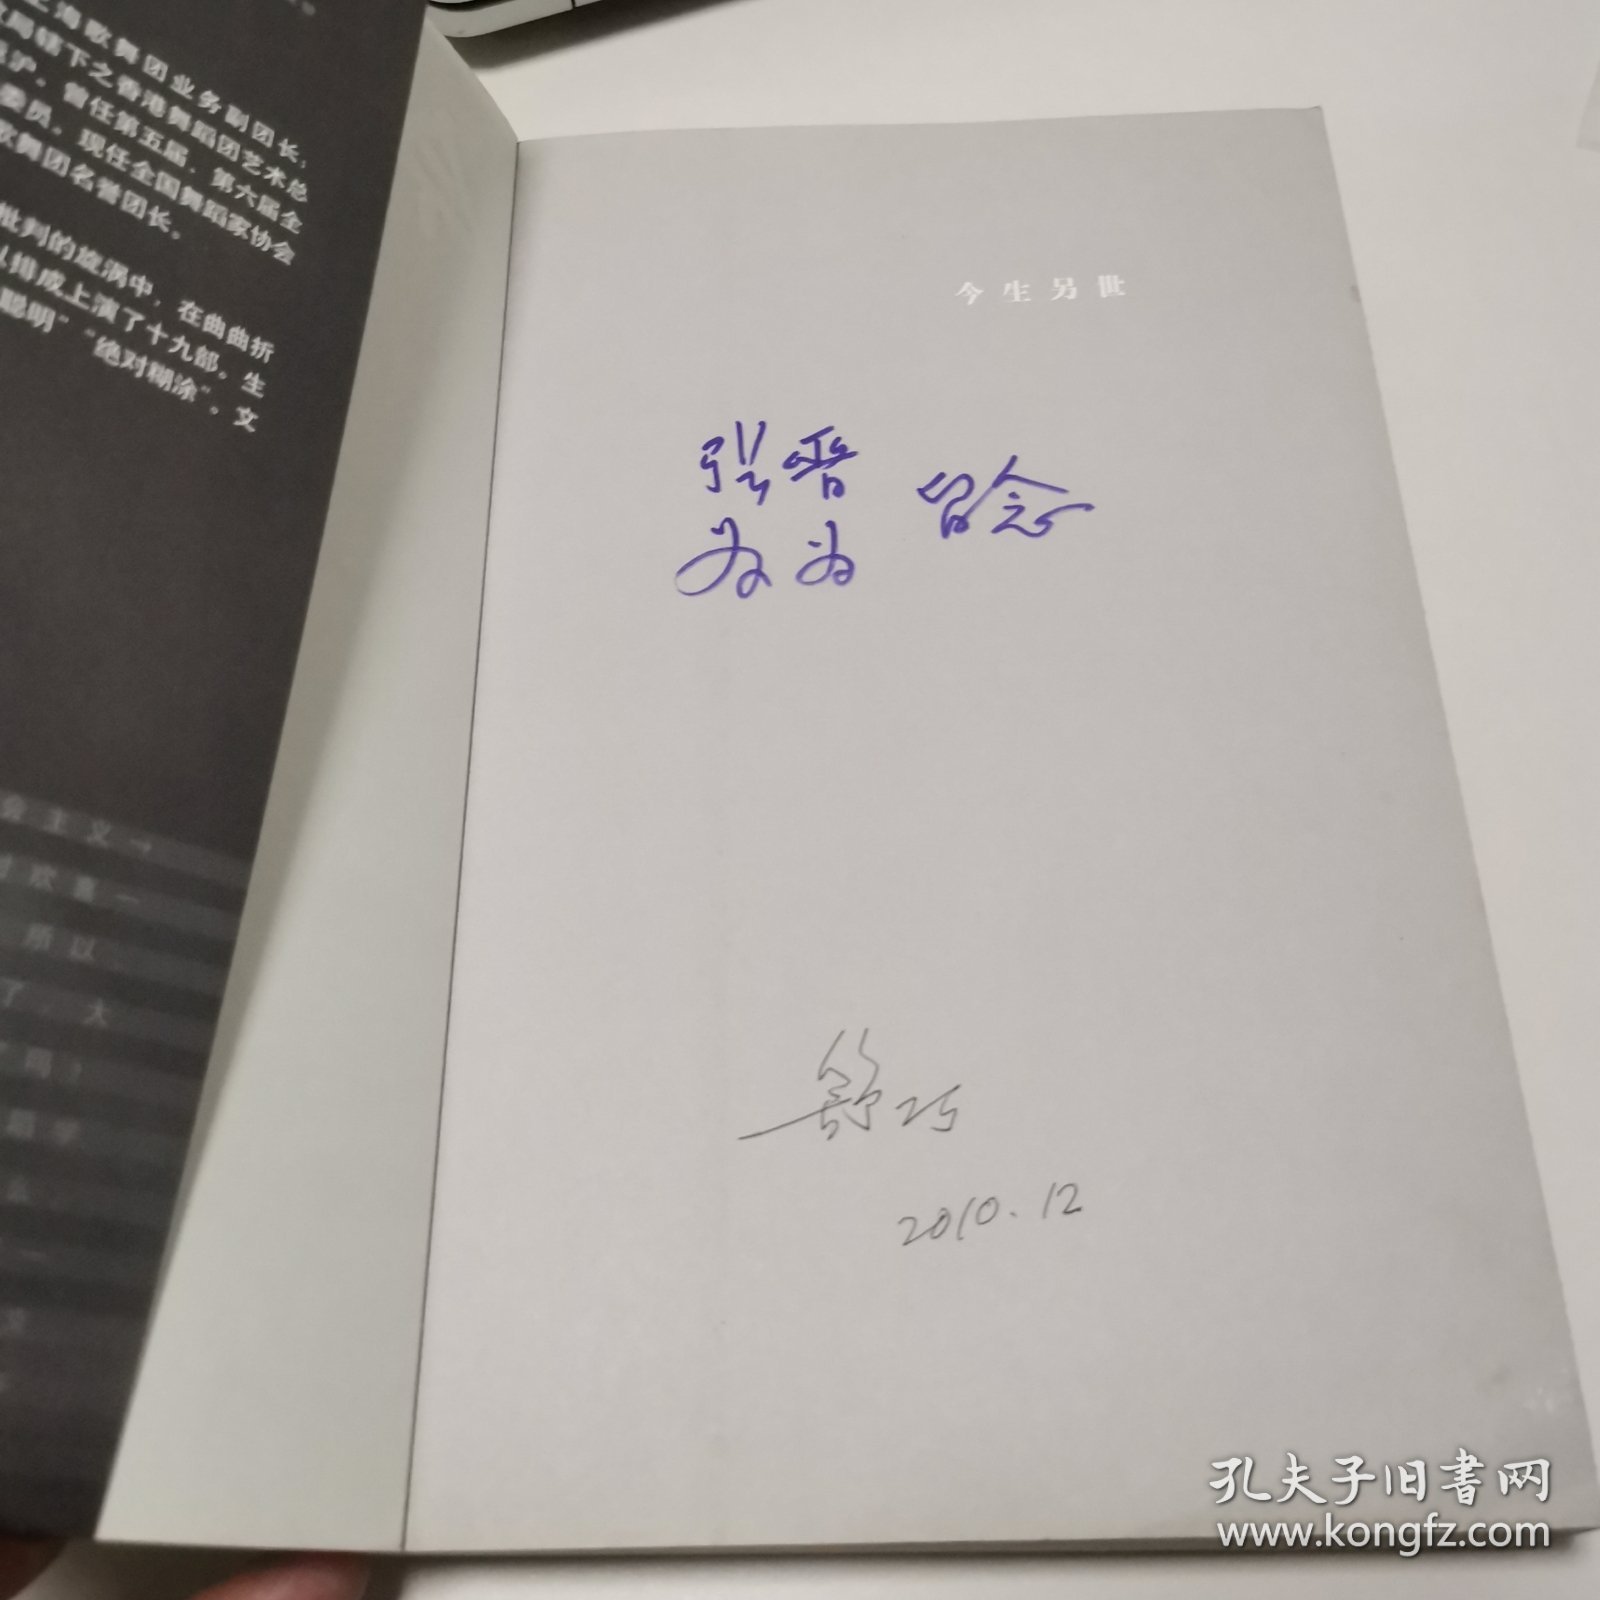 上海歌舞团业务副团长，
局辖下之香港舞蹈团艺术总
沪。曾任第五届、第六届全
委员，现任全国舞蹈家协会
歌舞团名誉团长。
批判的旋涡中，在曲曲折
排成上演了十九部。生
聪明”“绝对糊涂”。文
会主义
欢喜一
所以
了，大
吗！
蹈学
么，
一
今生另世
张晋
为为
留念
舒巧
2010.12
孔夫子旧书网
www.kongfz.com